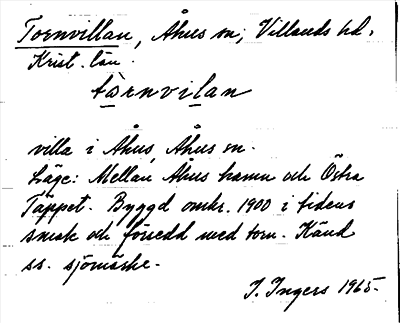 Tornvillan, Åhus sn, Villands hd,
Krist. län.
tòrnvilan
villa i Åhus, Åhus sn.
Läge: Mellan Åhus hamn och Östra
Täppet. Byggd omkr. 1900 i tidens
smak och försedd med torn. Känd
ss. sjömärke.
I. Ingers 1965.